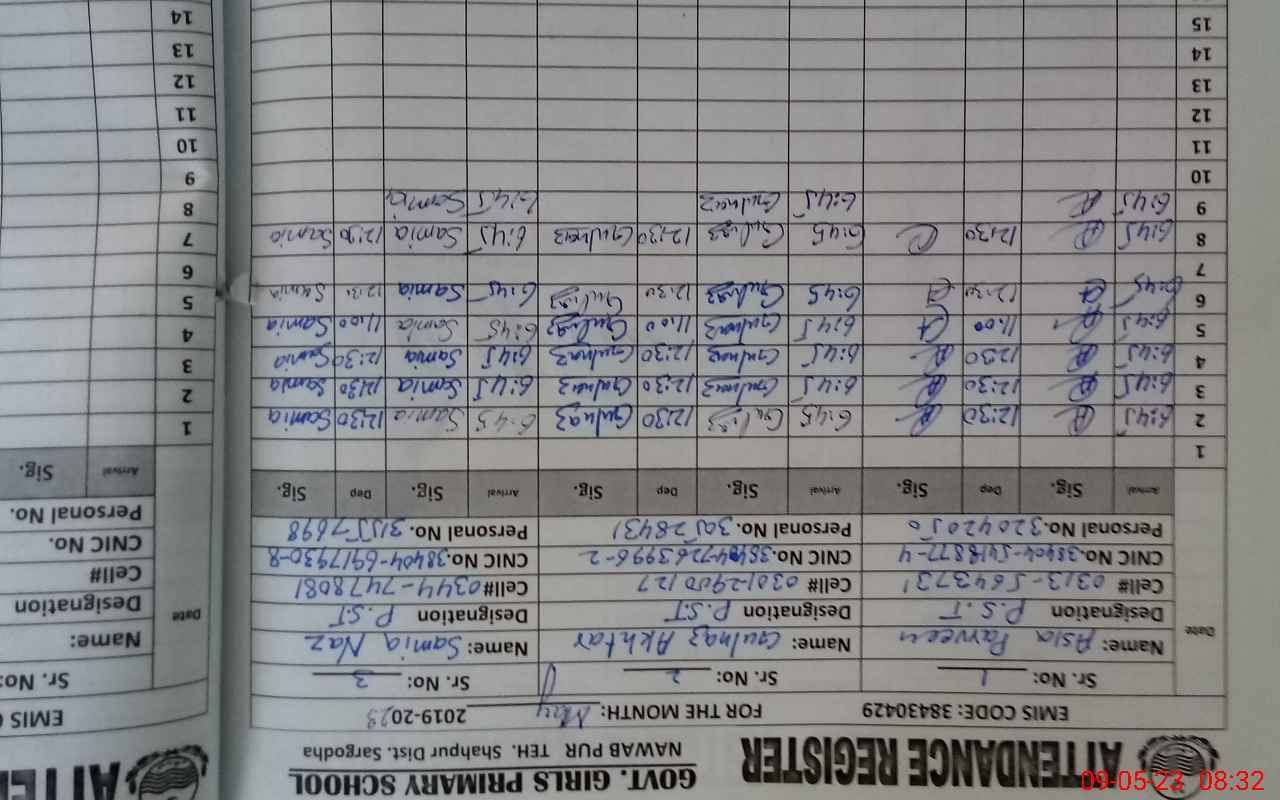 ATTENDANCE REGISTER
GOVT. GIRLS PRIMARY SCHOOL
NAWAB PUR TEH. Shahpur Dist. Sargodha
EMIS CODE: 38430429 FOR THE MONTH: May 2019-2023
Sr. No: 1 Sr. No: 2 Sr. No: 3
Date Name: Asia Parveen Name: Gulnaz Akhtar Name: Samia Naz
Designation P.S.T Designation P.S.T Designation P.S.T
Cell# 0313-5643731 Cell# 0301-2900127 Cell# 0344-7478081
CNIC No. 38404-5418877-4 CNIC No. 38404-7263996-2 CNIC No. 38404-6917930-8
Personal No. 32042050 Personal No. 30528431 Personal No. 31557698
Arrival Sig. Dep Sig. Arrival Sig. Dep Sig. Arrival Sig. Dep Sig.
1
2 6:45 12:30 6:45 Gulnaz 12:30 Gulnaz 6:45 Samia 12:30 Samia
3 6:45 12:30 6:45 Gulnaz 12:30 Gulnaz 6:45 Samia 12:30 Samia
4 6:45 12:30 6:45 Gulnaz 12:30 Gulnaz 6:45 Samia 12:30 Samia
5 6:45 11:00 6:45 Gulnaz 11:00 Gulnaz 6:45 Samia 11:00 Samia
6 6:45 12:30 6:45 Gulnaz 12:30 Gulnaz 6:45 Samia 12:30 Samia
7
8 6:45 12:30 6:45 Gulnaz 12:30 Gulnaz 6:45 Samia 12:30 Samia
9 6:45 6:45 Gulnaz 6:45 Samia
10
11
12
13
14
15
ATTEN
EMIS C
Sr. No:
Date Name:
Designation
Cell#
CNIC No.
Personal No.
Arrival Sig.
1
2
3
4
5
6
7
8
9
10
11
12
13
14
09-05-23 08:32